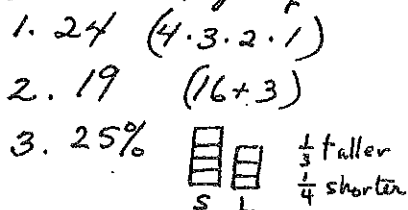 1. 24 (4·3·2·1)
2. 19 (16+3)
3. 25% 1/3 taller
1/4 shorter
S L